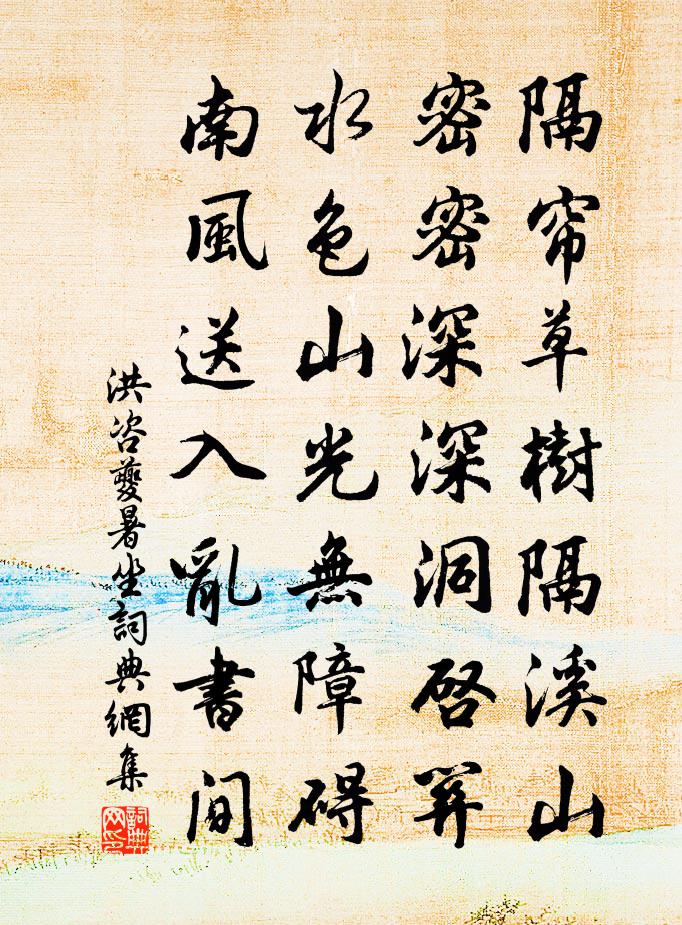 隔帘草樹隔溪山
密密深深洞啓關
水色山光無障礙
南風送入亂書間
洪咨夔暑坐詞典網集
詞典網印